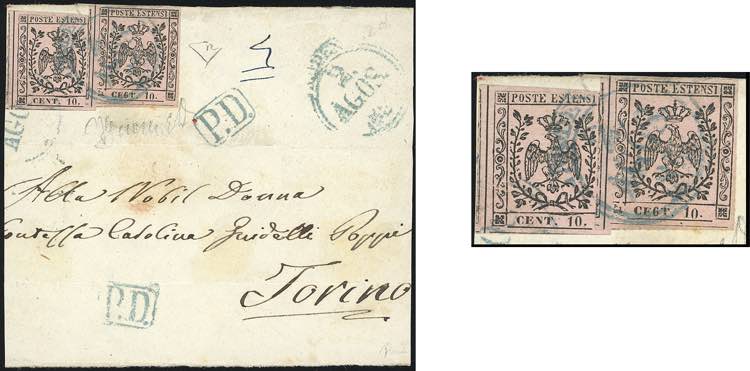 POSTE ESTENSI POSTE ESTENSI
CENT. 10. CE6T. 10.
AGOS
P.D.
AGO
Alla Nobil Donna
Contessa Carolina Guidelli Poppi
Torino
P.D.
POSTE ESTENSI POSTE ESTENSI
CENT. 10. CE6T. 10.